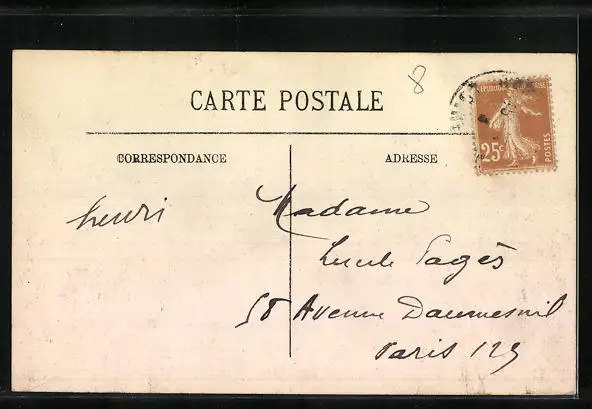 8
CARTE POSTALE
CORRESPONDANCE
ADRESSE
25c
POSTES
henri
Madame
Lucile Pagès
58 Avenue Daumesnil
Paris 12e